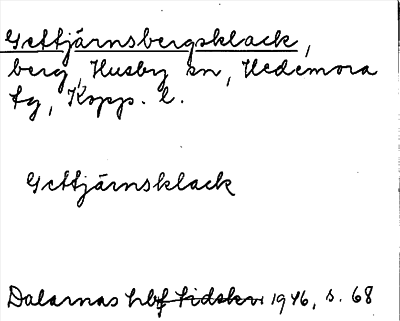 Gettjärnsbergsklack,
berg, Husby sn, Hedemora
tg, Kopp. l.
Gettjärnsklack
Dalarnas hbf tidskr. 1946, s. 68